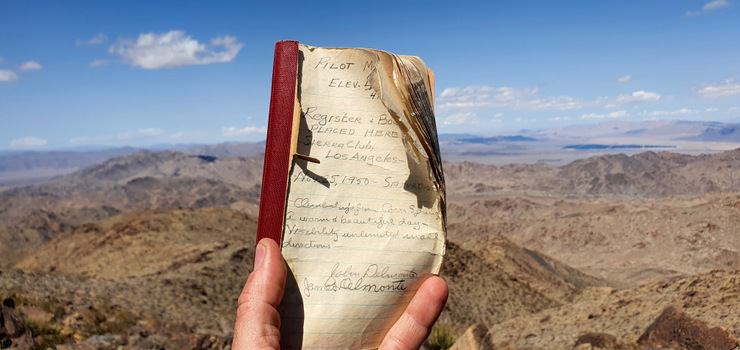 PILOT M
ELEV.
Register & Bo
PLACED HERE
Sierra Club
Los Angeles-
25, 1950 -
Climbed up from Corn Springs
a warm & beautiful day-
Visibility unlimited in all
directions
John Delmonte
James Delmonte